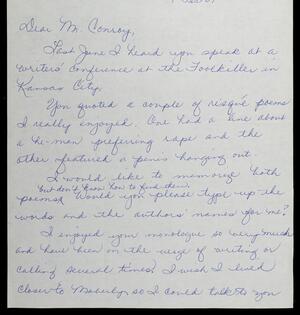 Dear Mr. Conroy,
Last June I heard you speak at a
writers' conference at the Foolkiller in
Kansas City.
You quoted a couple of risqué poems
I really enjoyed. One had a line about
a he-man preferring rape and the
other featured a penis hanging out.
I would like to memorize both
but don't know how to find them.
poems. Would you please type up the
words and the authors' names for me?
I enjoyed your monologue so very much
and have been on the verge of writing or
calling several times. I wish I lived
closer to Moberly, so I could talk to you